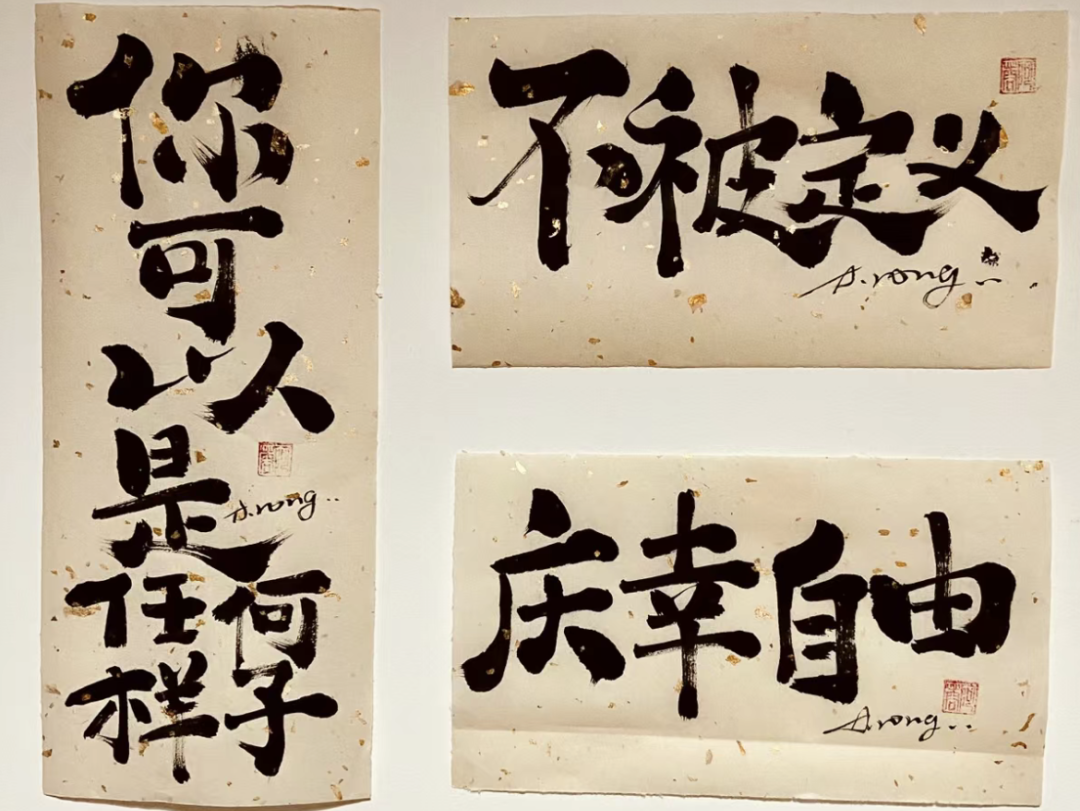 你
可
以
是
A.rong..
任何
样子
不被定义
A.rong..
庆幸自由
A.rong..